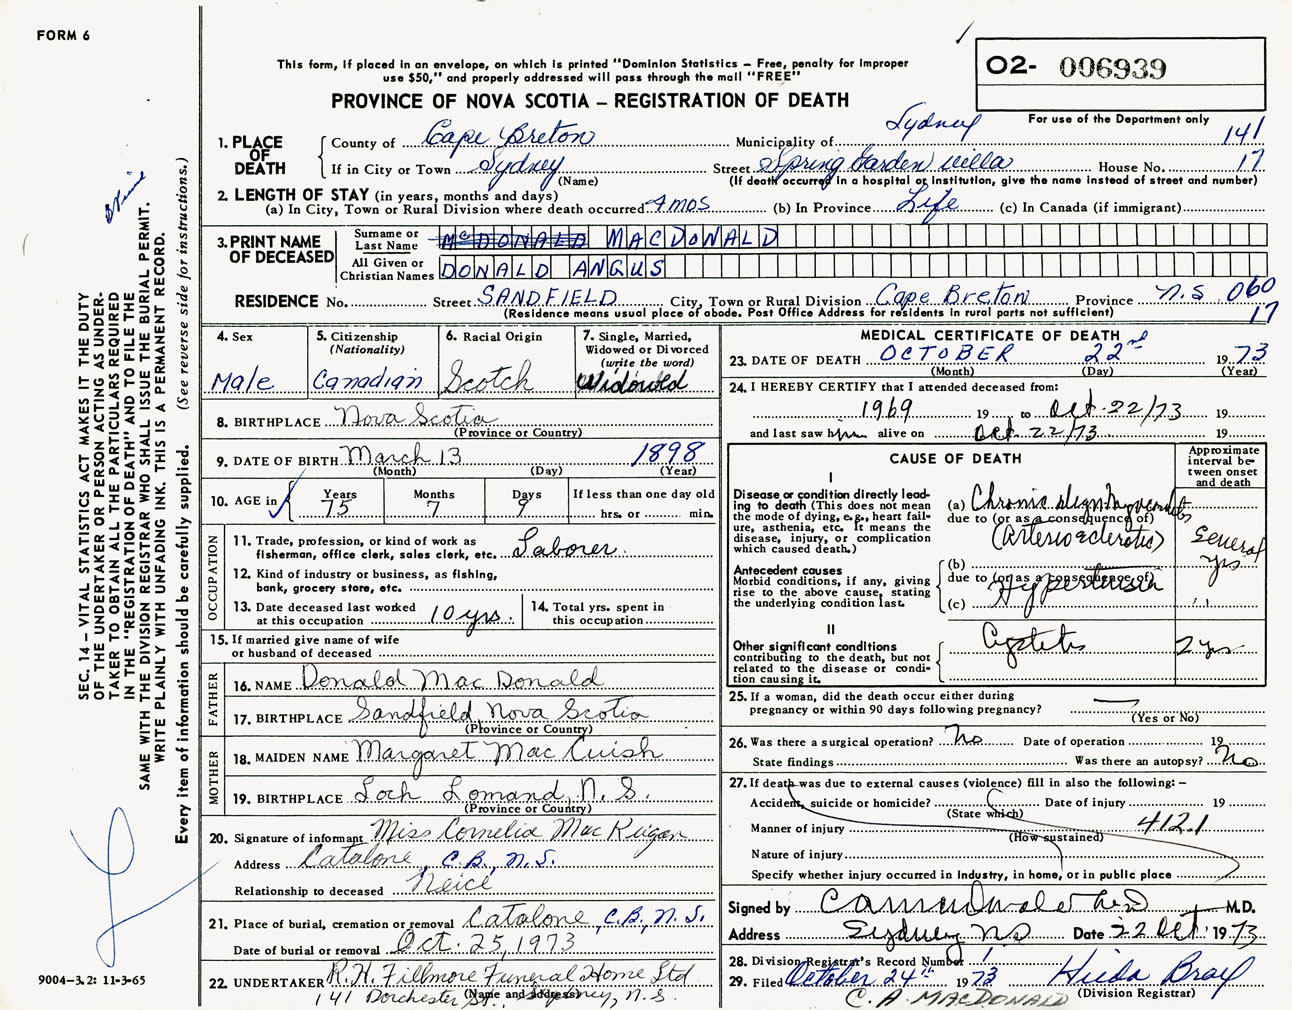 FORM 6
This form, if placed in an envelope, on which is printed "Dominion Statistics – Free, penalty for improper
use $50," and properly addressed will pass through the mail "FREE"
PROVINCE OF NOVA SCOTIA – REGISTRATION OF DEATH
O2- 006939
For use of the Department only
1. PLACE OF DEATH County of Cape Breton Municipality of Sydney 141
If in City or Town Sydney Street Spring Garden Villa House No. 17
(Name) (If death occurred in a hospital or institution, give the name instead of street and number)
2. LENGTH OF STAY (in years, months and days)
(a) In City, Town or Rural Division where death occurred 4 mos (b) In Province Life (c) In Canada (if immigrant)
3. PRINT NAME OF DECEASED Surname or Last Name McDONALD MACDONALD
All Given or Christian Names DONALD ANGUS
RESIDENCE No. Street SANDFIELD City, Town or Rural Division Cape Breton Province N.S 060
(Residence means usual place of abode. Post Office Address for residents in rural parts not sufficient) 17
4. Sex Male
5. Citizenship (Nationality) Canadian
6. Racial Origin Scotch
7. Single, Married, Widowed or Divorced (write the word) Widowed
8. BIRTHPLACE Nova Scotia
(Province or Country)
9. DATE OF BIRTH March 13 1898
(Month) (Day) (Year)
10. AGE in Years 75 Months 7 Days 9 If less than one day old hrs. or min.
OCCUPATION
11. Trade, profession, or kind of work as
fisherman, office clerk, sales clerk, etc. Laborer.
12. Kind of industry or business, as fishing,
bank, grocery store, etc.
13. Date deceased last worked at this occupation 10 yrs.
14. Total yrs. spent in this occupation
15. If married give name of wife
or husband of deceased
FATHER
16. NAME Donald MacDonald
17. BIRTHPLACE Sandfield, Nova Scotia
(Province or Country)
MOTHER
18. MAIDEN NAME Margaret MacCuish
19. BIRTHPLACE Loch Lomand, N.S.
(Province or Country)
20. Signature of informant Miss Cornelia MacKigan
Address Catalone, C.B., N.S.
Relationship to deceased Neice
21. Place of burial, cremation or removal Catalone, C.B., N.S.
Date of burial or removal Oct. 25, 1973
22. UNDERTAKER R.H. Fillmore Funeral Home Ltd
(Name and address)
141 Dorchester St., Sydney, N.S.
MEDICAL CERTIFICATE OF DEATH
23. DATE OF DEATH OCTOBER 22nd 1973
(Month) (Day) (Year)
24. I HEREBY CERTIFY that I attended deceased from:
1969 19 to Oct. 22/73 19
and last saw him alive on Oct. 22/73 19
CAUSE OF DEATH
Approximate interval between onset and death
I
Disease or condition directly lead-
ing to death (This does not mean
the mode of dying, e.g., heart fail-
ure, asthenia, etc. It means the
disease, injury, or complication
which caused death.)
(a) Chronic
due to (or as a consequence of)
Several yrs
Antecedent causes
Morbid conditions, if any, giving
rise to the above cause, stating
the underlying condition last.
(b)
due to (or as a consequence of)
(c) Hypertension ,,
II
Other significant conditions
contributing to the death, but not
related to the disease or condi-
tion causing it.
Cystitis 2 yrs
25. If a woman, did the death occur either during
pregnancy or within 90 days following pregnancy? —
(Yes or No)
26. Was there a surgical operation? No Date of operation 19
State findings Was there an autopsy? No
27. If death was due to external causes (violence) fill in also the following: –
Accident, suicide or homicide? Date of injury 19
(State which)
Manner of injury 412.1
(How sustained)
Nature of injury
Specify whether injury occurred in industry, in home, or in public place
Signed by M.D.
Address Sydney NS Date 22 Oct 1973
28. Division Registrar's Record Number 1
29. Filed October 24th 1973 Hilda Bray
(Division Registrar)
C. A MACDONALD
SEC. 14 – VITAL STATISTICS ACT MAKES IT THE DUTY
OF THE UNDERTAKER OR PERSON ACTING AS UNDER-
TAKER TO OBTAIN ALL THE PARTICULARS REQUIRED
IN THE "REGISTRATION OF DEATH" AND TO FILE THE
SAME WITH THE DIVISION REGISTRAR WHO SHALL ISSUE THE BURIAL PERMIT.
WRITE PLAINLY WITH UNFADING INK. THIS IS A PERMANENT RECORD.
Every item of information should be carefully supplied. (See reverse side for instructions.)
9004-3.2: 11-3-65